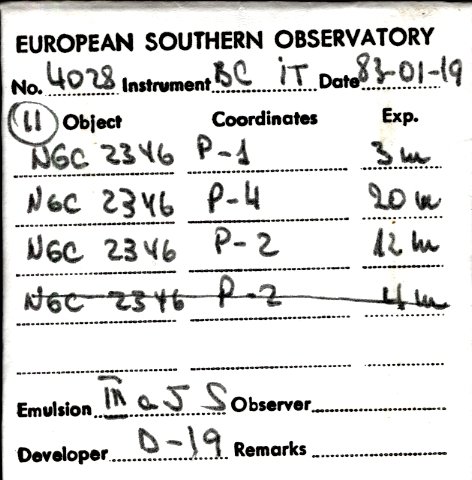 EUROPEAN SOUTHERN OBSERVATORY
No. 4028 Instrument BC IT Date 83-01-19
11 Object Coordinates Exp.
NGC 2346 P-1 3m
NGC 2346 P-4 20m
NGC 2346 P-2 12m
NGC 2346 P-2 4m
Emulsion III a J S Observer
Developer D-19 Remarks